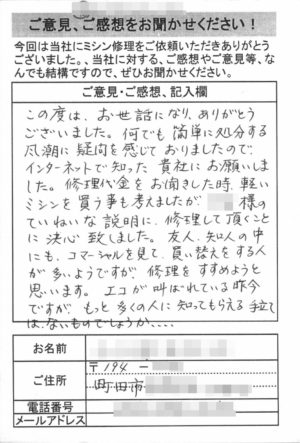 ご意見、ご感想をお聞かせください!
今回は当社にミシン修理をご依頼いただきありがとう
ございました。、当社に対する、ご感想やご意見等、な
んでも結構ですので、ぜひお聞かせください。
ご意見・ご感想、記入欄
この度は、お世話になり、ありがとう
ございました。何でも簡単に処分する
風潮に疑問を感じておりましたので、
インターネットで知った貴社にお願いしま
した。修理代金をお聞きした時、軽い
ミシンを買う事も考えましたが 様の
ていねいな説明に、修理して頂くこと
に決心致しました。友人、知人の中
にも、コマーシャルを見て、買い替えをする人
が多いようですが、修理をすすめようと
思います。エコが叫ばれている昨今
ですが、もっと多くの人に知ってもらえる手立て
は、ないものでしょうか....
お名前
ご住所
〒194 -
町田市
電話番号
メールアドレス